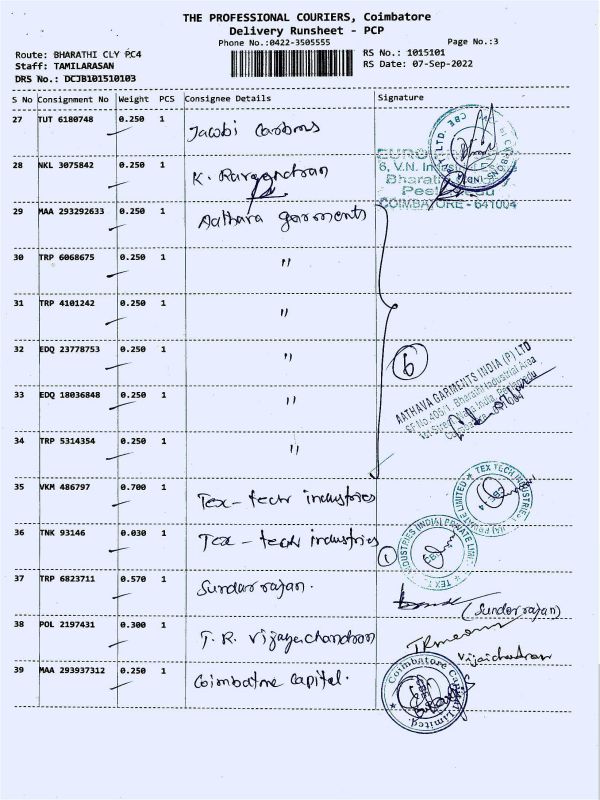 THE PROFESSIONAL COURIERS, Coimbatore
Delivery Runsheet - PCP
Phone No.:0422-3505555
Page No.:3
Route: BHARATHI CLY PC4
RS No.: 1015101
Staff: TAMILARASAN
RS Date: 07-Sep-2022
DRS No.: DCJB101510103
S No Consignment No Weight PCS Consignee Details Signature
27 TUT 6180748 0.250 1 Jacobi Carbons
28 NKL 3075842 0.250 1 K.
29 MAA 293292633 0.250 1 Aathava garments
30 TRP 6068675 0.250 1 "
31 TRP 4101242 0.250 1 "
32 EDQ 23778753 0.250 1 "
33 EDQ 18036848 0.250 1 "
34 TRP 5314354 0.250 1 "
6
AATHAVA GARMENTS INDIA (P) LTD
SF No 405/1, Bharathi Industrial Area
COIMBATORE - 641004
35 VKM 486797 0.700 1 Tex-tech industries
36 TNK 93146 0.030 1 Tex-tech industries
37 TRP 6823711 0.570 1 Sundar rajan.
(Sundar rajan)
38 POL 2197431 0.300 1 T. R. Vijayachandran
Vijaichandran
39 MAA 293937312 0.250 1 Coimbatore Capital.
Coimbatore Capital Limited